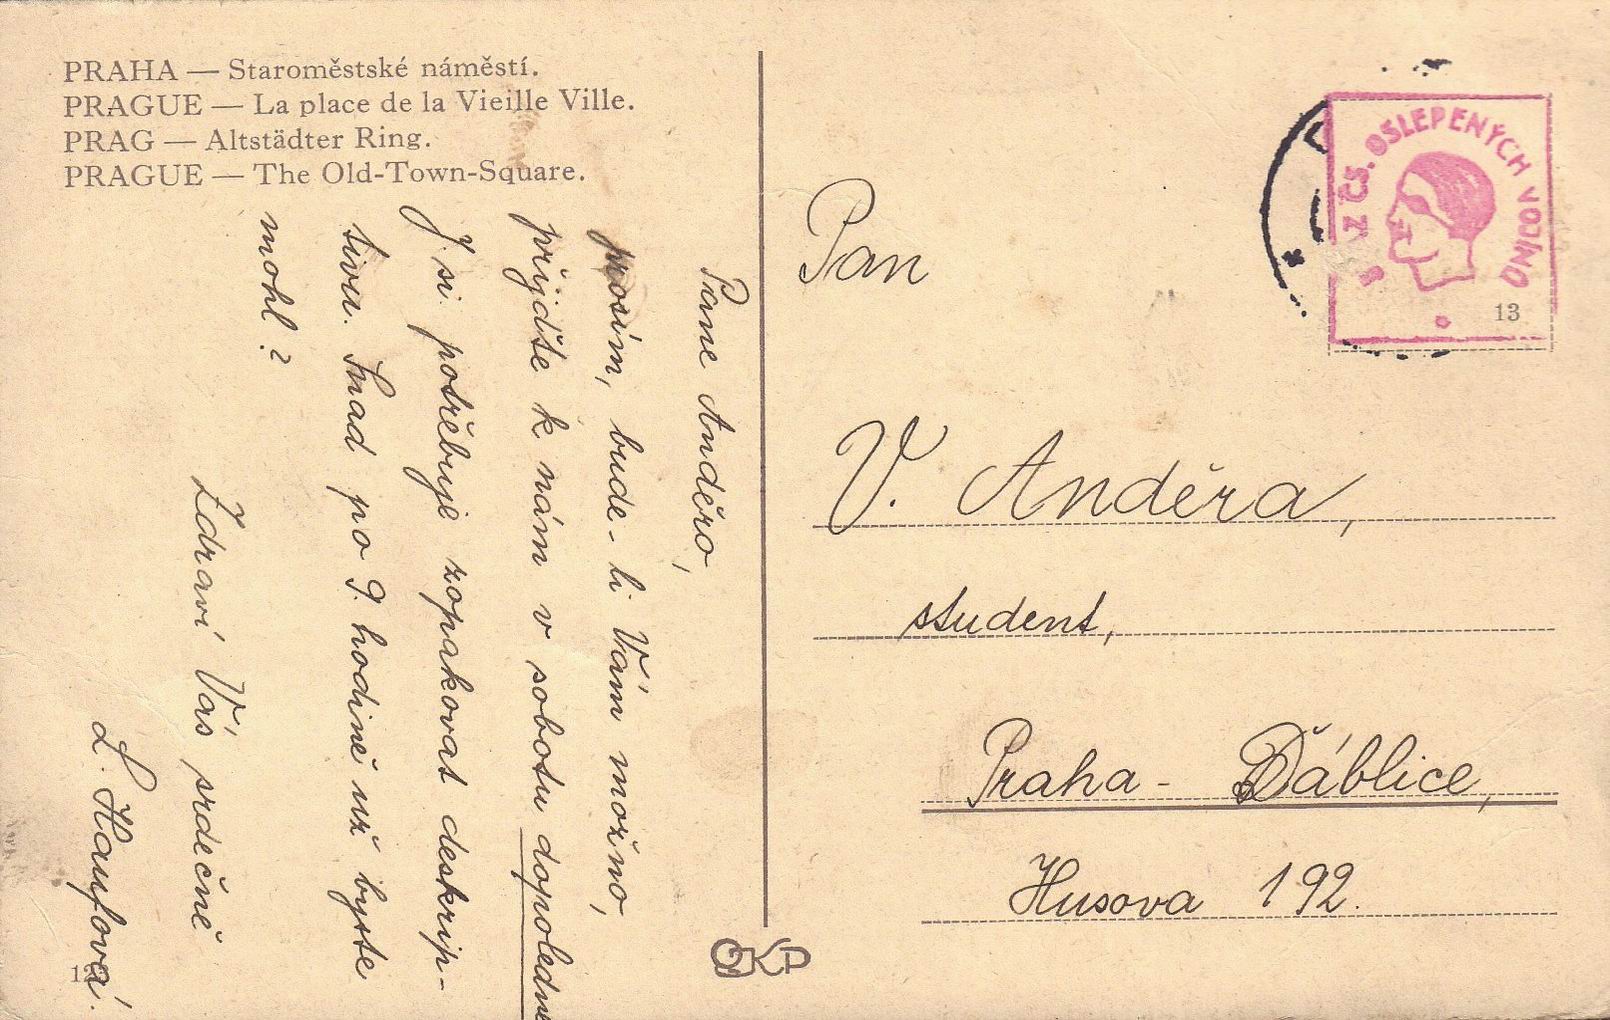 PRAHA — Staroměstské náměstí.
PRAGUE — La place de la Vieille Ville.
PRAG — Altstädter Ring.
PRAGUE — The Old-Town-Square.
Pane Anděro,
prosím, bude-li Vám možno,
přijďte k nám v sobotu dopoledne
J si potřebuje zopakovat deskrip-
tivu. Snad po 9. hodině už byste
mohl?
Zdraví Vás srdečně
L. Hanflová.
OSLEPENÝCH VOJÍNŮ
Z ČS.
13
Pan
V. Anděra,
student,
Praha - Ďáblice,
Husova 192.